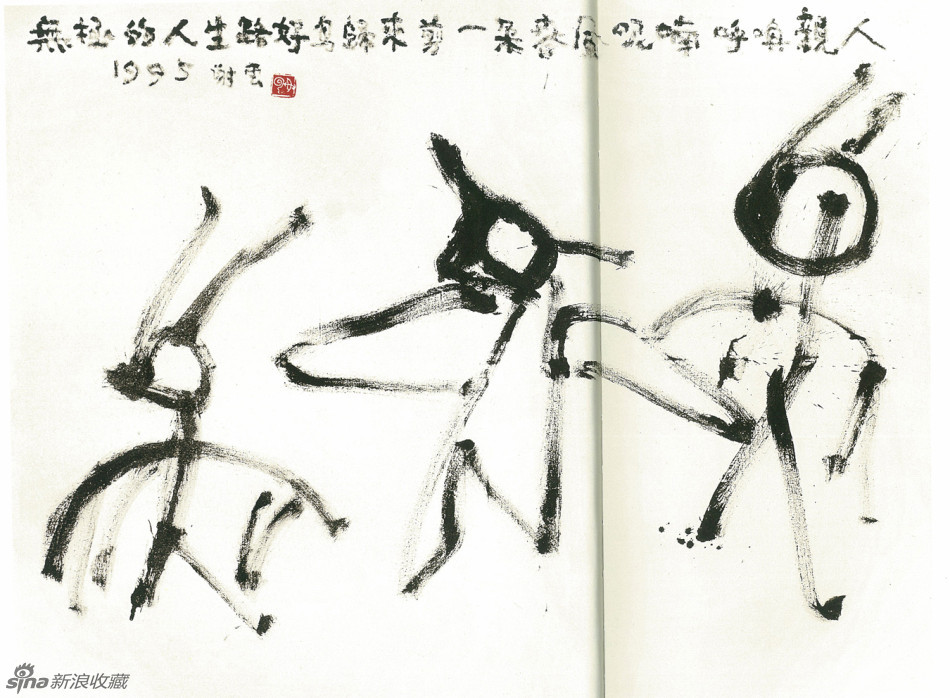 無极的人生路好鸟歸来剪一朵春风呢喃呼唤親人
1995 谢云
sina新浪收藏